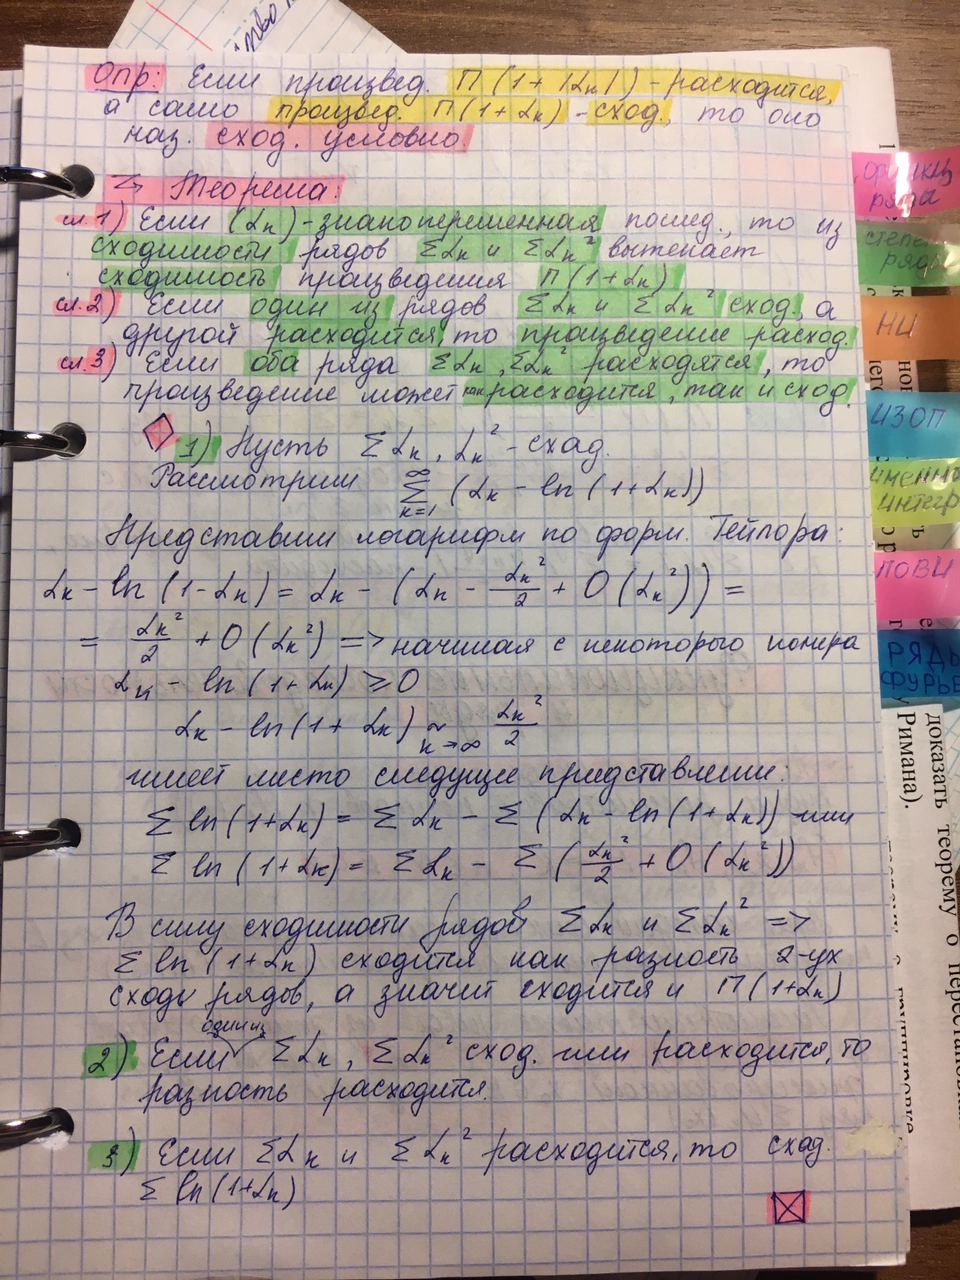 тво
Опр: Если произвед. П(1+|αₖ|) - расходится,
а само произвед. П(1+αₖ) - сход., то оно
наз. сход. условно.
Теорема:
сл.1) Если (αₙ) - знакопеременная послед., то из
сходимости рядов Σαₖ и Σαₖ² вытекает
сходимость произведения П(1+αₖ)
сл.2) Если один из рядов Σαₖ и Σαₖ² сход., а
другой расходится, то произведение расход.
сл.3) Если оба ряда Σαₖ, Σαₖ² расходятся, то
произведение может как расходится, так и сход.
1) Пусть Σαₖ, αₖ² - сход.
Рассмотрим Σ_{k=1}^{∞} (αₖ - ln(1+αₖ))
Представим логарифм по форм. Тейлора:
αₖ - ln(1-αₖ) = αₖ - (αₖ - αₖ²/2 + O(αₖ²)) =
= αₖ²/2 + O(αₖ²) => начиная с некоторого номера
αₖ - ln(1+αₖ) ⩾ 0
αₖ - ln(1+αₖ) ~_{k→∞} αₖ²/2
имеет место следущее представление:
Σ ln(1+αₖ) = Σ αₖ - Σ (αₖ - ln(1+αₖ)) или
Σ ln(1+αₖ) = Σ αₖ - Σ (αₖ²/2 + O(αₖ²))
В силу сходимости рядов Σαₖ и Σαₖ² =>
Σ ln(1+αₖ) сходится как разность 2-ух
сход. рядов, а значит сходится и П(1+αₖ)
один из
2) Если Σαₖ, Σαₖ² сход. или расходится, то
разность расходится.
3) Если Σαₖ и Σαₖ² расходится, то сход.
Σ ln(1+αₖ)
ряды
степен
ряды
НИ
ИЗОП
интегр
ПОВИ
РЯДЫ
ФУРЬЕ
доказать теорему о перестановке
Римана).